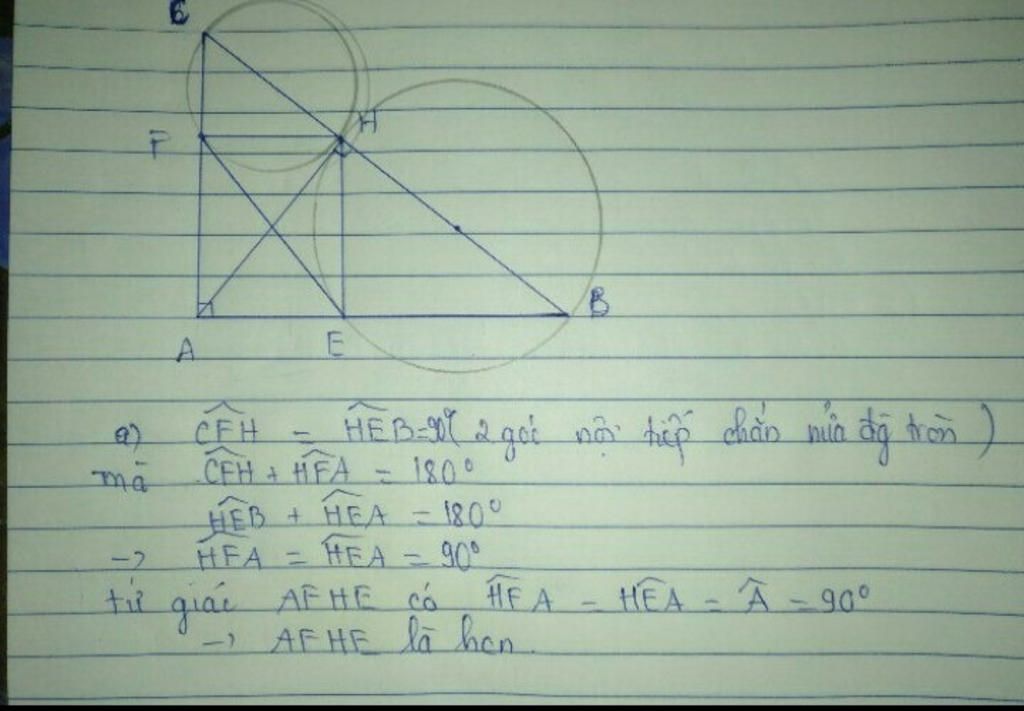 C
F
H
B
A
E
a) CFH = HEB = 90° ( 2 góc nội tiếp chắn nửa đg tròn )
mà CFH + HFA = 180°
HEB + HEA = 180°
-> HFA = HEA = 90°
tứ giác AFHE có HFA = HEA = Â = 90°
-> AFHE là hcn.